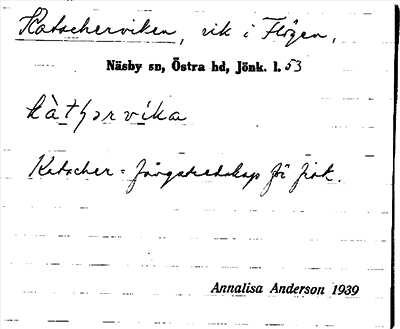 Katscherviken, vik i Flögen,
Näsby sn, Östra hd, Jönk. l. 53
kàtʃərvíka
Katscher = fångstredskap för fisk.
Annalisa Anderson 1939